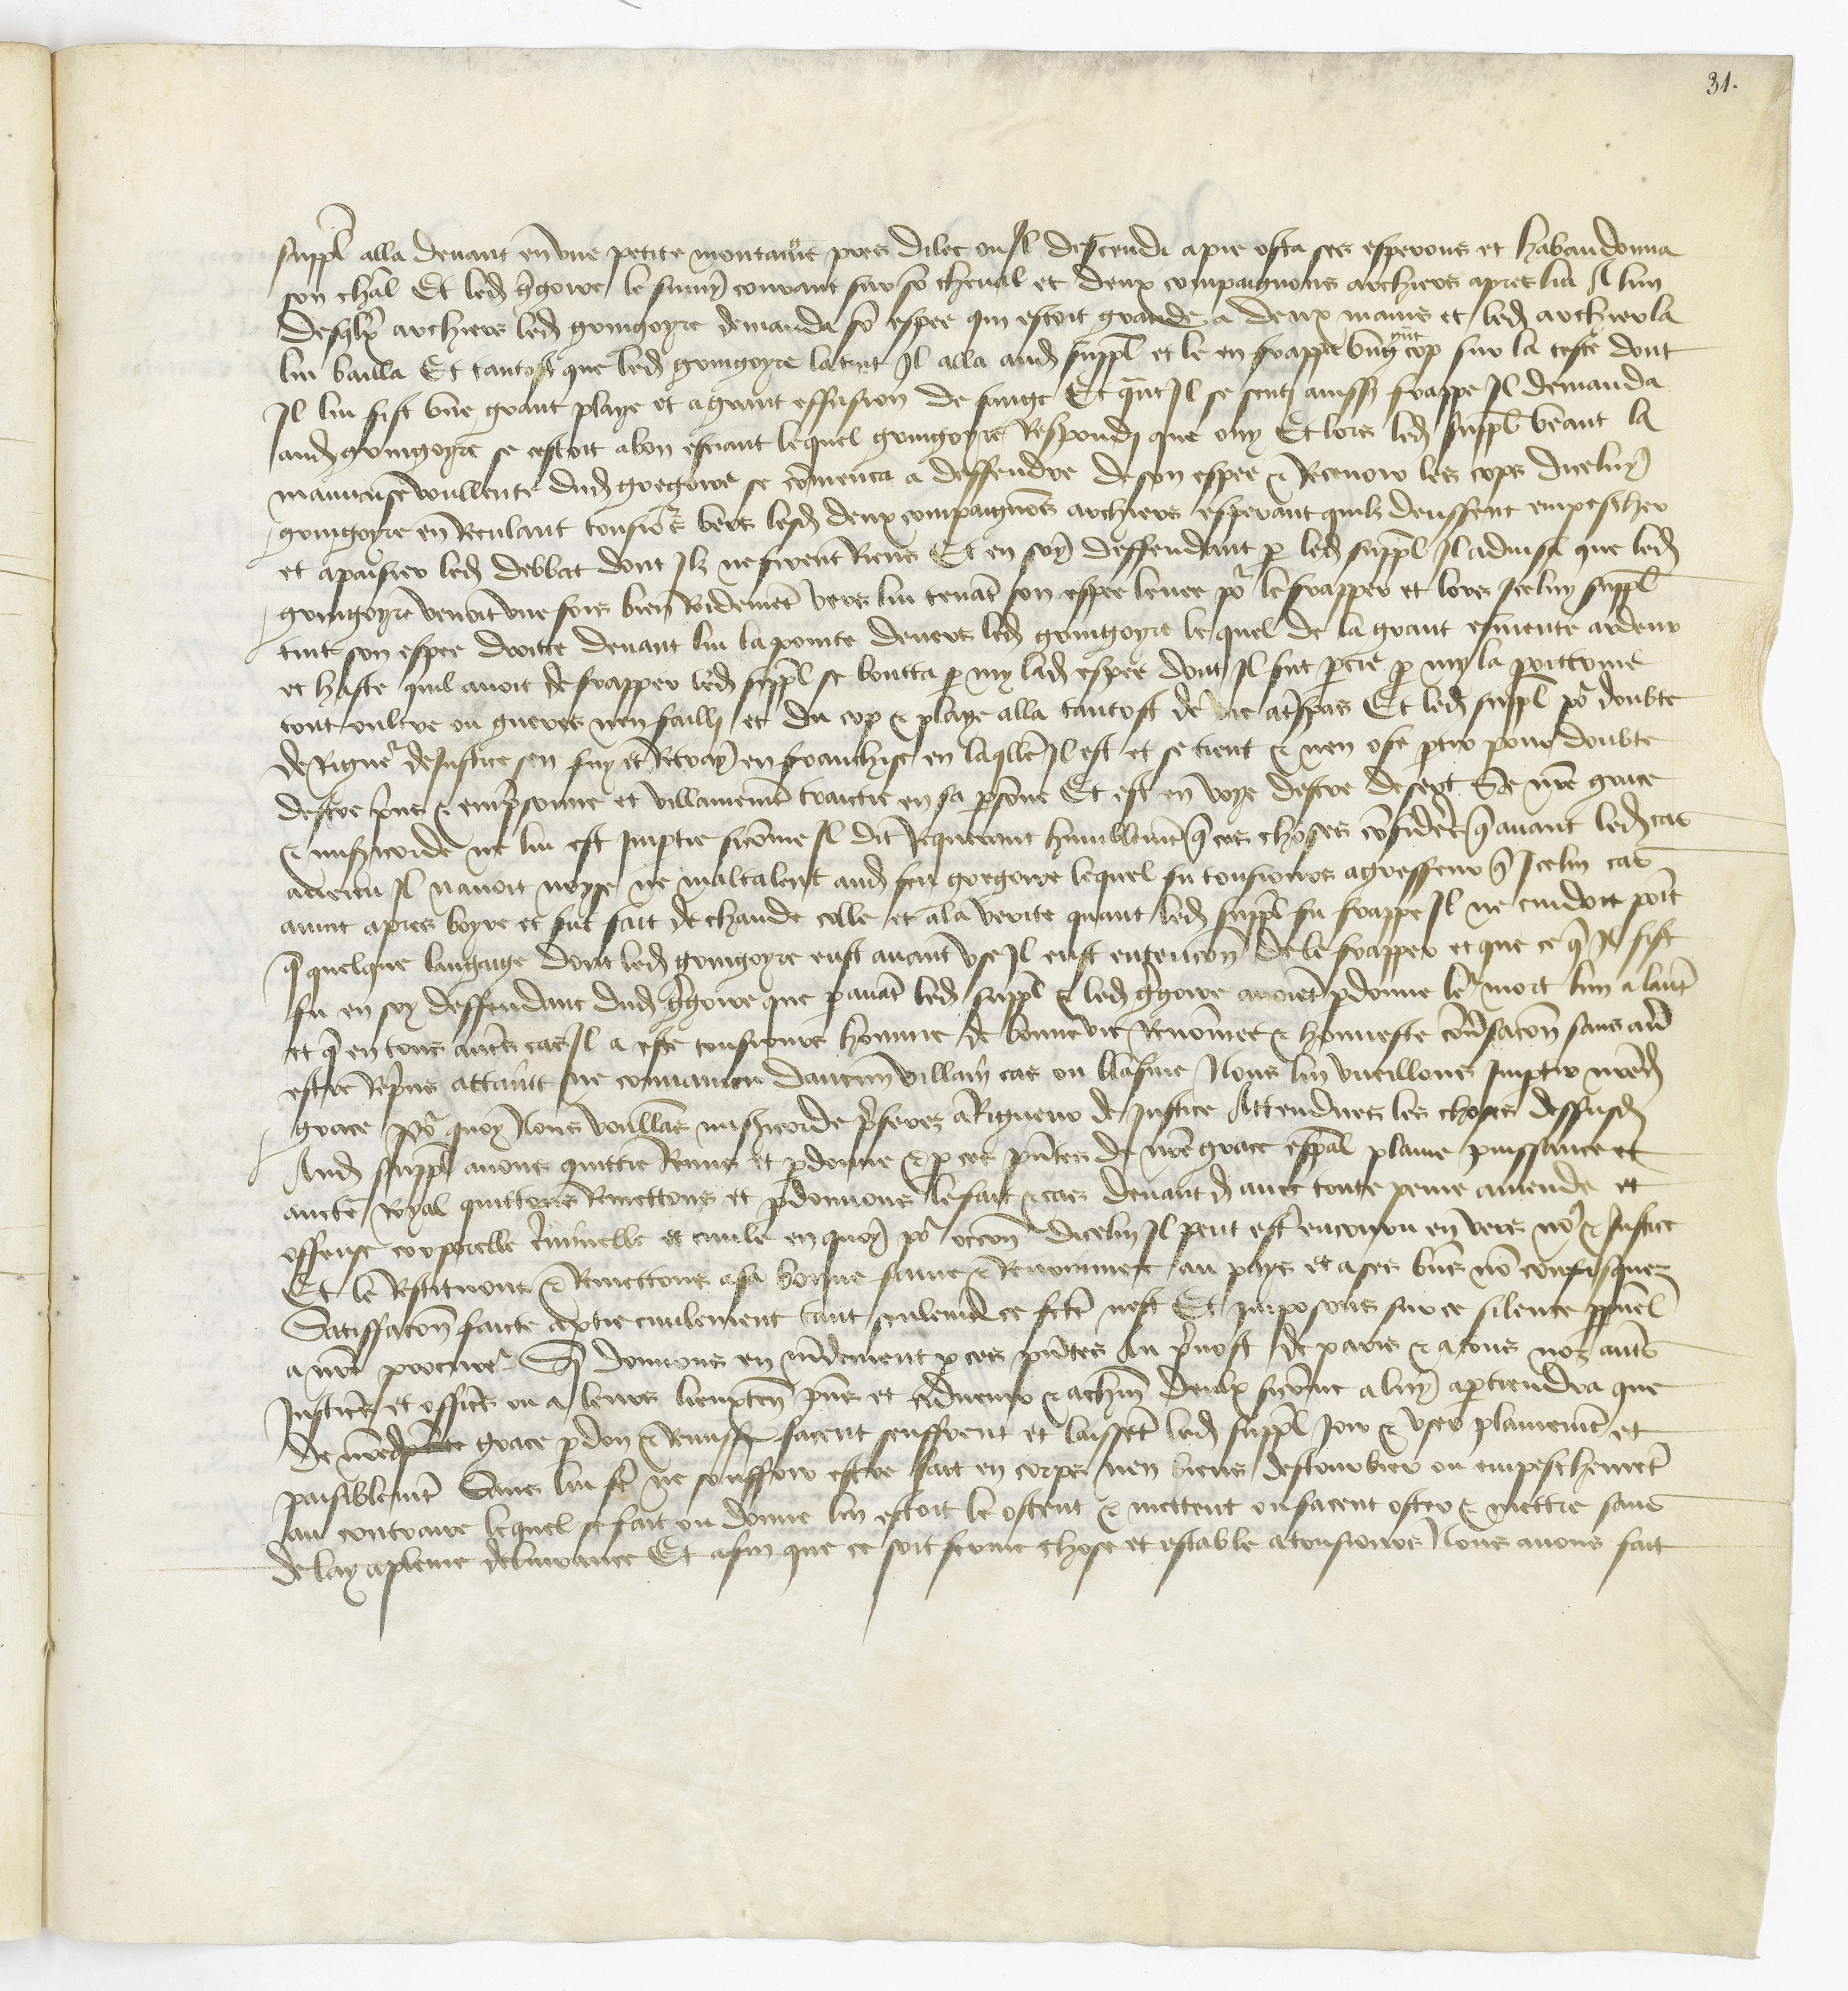 31.
suppl alla devant en une petite montaigne pres dilec ou Il descendi a pie osta ses esperons et habandonna
son chal Et led gregoire le suivy courant sur so cheval et deux compaignons archiers apres lui A lun
desqlx archiers led gringoyre demanda so espee qui estoit grande a deux mains et led archier la
lui bailla Et tantost que led gringoyre la tint Il alla aud suppl et le en frappa ung grant cop sur la teste dont
Il lui fist une grant playe et a grant effusion de sange Et quant Il se senti ainssy frappe Il demanda
aud gringoyre se cestoit a bon esciant lequel gringoyre Respondi que ouy Et lors led suppl veant la
mauvaise voullente dud gregoire se comenca a deffendre de son espee & Recevoir les cops diceluy
gringoyre en Reculant tousiours vers lesd deux compaignons archiers esperant quilz deussent empescher
et apaisier led debbat dont Ilz ne firent Riens Et en soy deffendant par led suppl Il advisa que led
gringoyre venoit une fois bien Roidement vers lui tenant son espee levee por le frapper et lors Iceluy suppl
tint son espee droitte devant lui la pointe devers led gringoyre lequel de la grant esmeute ardeur
et haste quil avoit de frapper led suppl se boutta par my lad espee dont Il fut percie par my la poittrine
tout oultre ou gueres nen failli et du cop & playe alla tantost de vie a trespas Et led suppl por doubte
de Rigueur de Justice sen fuy et Retray en franchise en laqlle Il est et se tient & nen ose partir pour doubte
destre prins & emprisonne et villainement traictie en sa personne Et est en voye destre desert Se nre grace
& misericorde ne lui est Impartie sicomme Il dit Requerant humblement que ces choses considerees que avant led cas
advenu Il navoit noyse ne maltalent aud feu gregoire lequel fu tousiours agresseur que Icelui cas
avint apres boyre et fut fait de chaude colle et a la verite quant led suppl fu frappe Il ne cuidoit point
que quelque langaige dont led gringoyre eust avant use Il eust entencion de le frapper et que ce que Il fist
fu en soy deffendant dud gregoire que par avant led suppl & led gregoire avoient pardonne leur mort lun a lautre
et que en tous autres cas Il a este tousiours homme de bonne vie Renommee & honneste conversacion sans autre
estre Reprins attaint ne convaincu daucun villain cas ou blasme Nous lui vueillons Impartir nred
grace Por quoy Nous voullans misericorde preferer a Rigueur de Justice Attendues les choses dessusd
Aud suppl avons quittie Remis et pardonne & par ces presentes de nre grace especial plaine puissance et
aucte Royal quittons Remettons et pardonnons le fait & cas devant d avec toute peine amende et
offense corporelle criminelle et civile en quoy por occon dicelui Il peut estre encouru envers nous & Justice
Et le Restituons & Remettons a sa bonne fame & Renommee au pays et a ses biens non confisquez
Satisffacion faicte a partie civilement tant seulement se fcte nest Et Imposons sur ce silence perpetuel
a nre procureur Si donnons en mandement par ces presentes au prevost de paris & a tous noz autres
Justiciers et officiers ou a leurs lieuxten presens et advenir & a chun deulx si comme a luy apartiendra que
de nred grace pardon & Remission facent seuffrent et laissent led suppl Joir & user plainement et
paisiblement Sans lui fe ne souffrir estre fait en corps nen biens destourbier ou empeschement
au contraire lequel se fait ou donne lui estoit le ostent & mettent ou facent oster & mettre sans
delay a pleine delivrance Et afin que ce soit ferme chose et estable a tousiours Nous avons fait